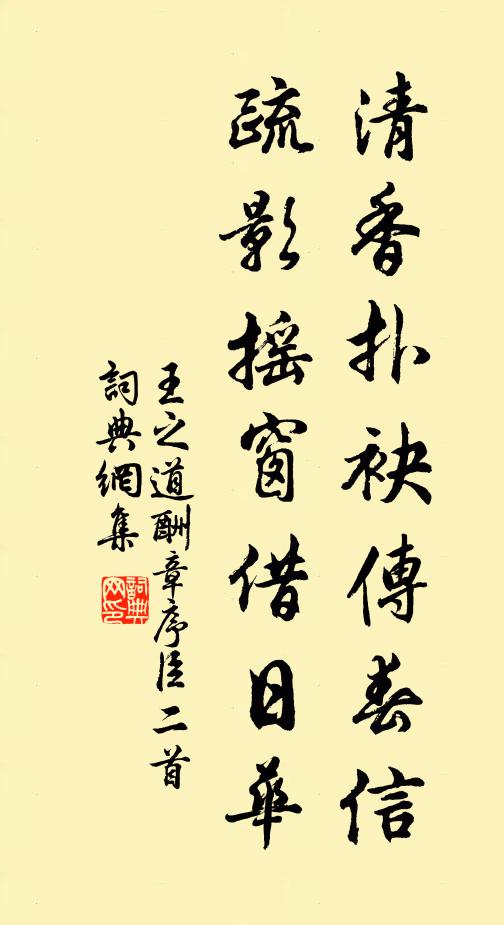 清香扑袂傳春信
疏影摇窗借日華
王之道酬章序臣二首
詞典網集
詞典网印